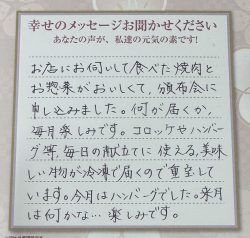 幸せのメッセージお聞かせください
あなたの声が、私達の元気の素です!
お店にお伺いして食べた焼肉と
お惣菜がおいしくて、頒布会に
申し込みました。何が届くか、
毎月楽しみです。コロッケやハンバー
グ等、毎日の献立てに使える、美味
しい物が冷凍で届くので重宝して
います。今月はハンバーグでした。来月
は何かな… 楽しみです。